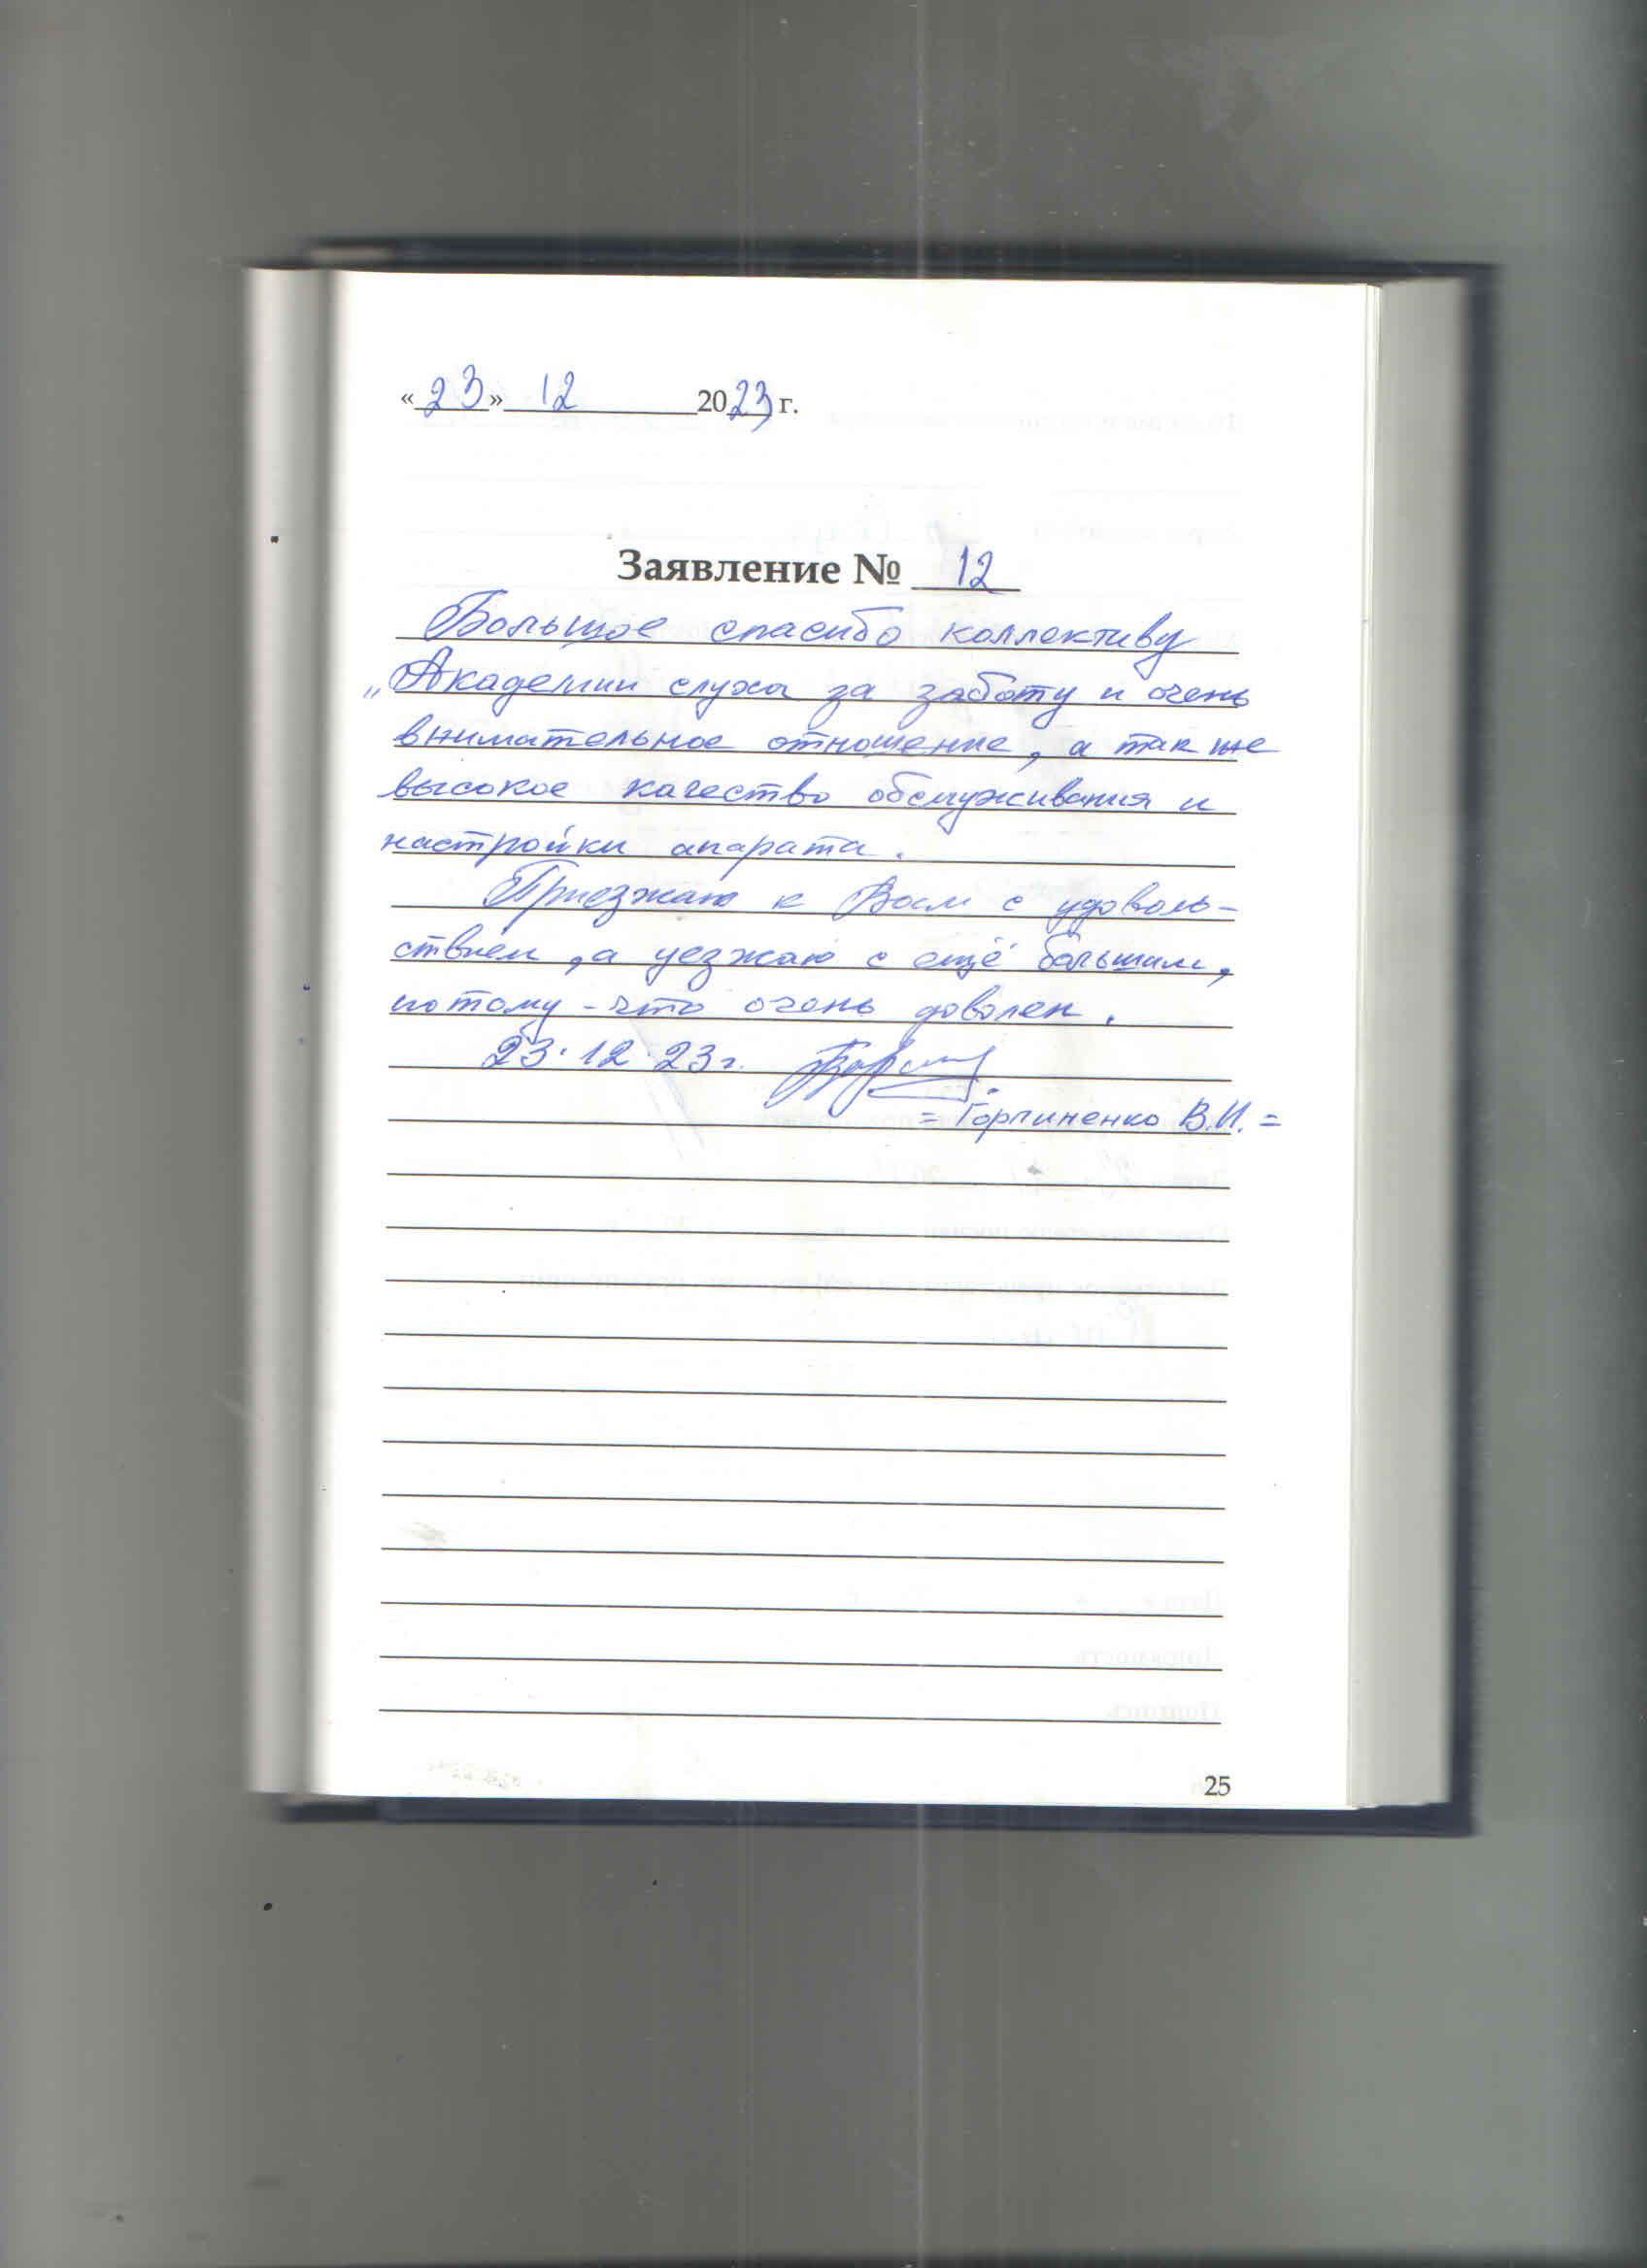 «23» 12 2023 г.
Заявление № 12
Большое спасибо коллективу
„Академии слуха за заботу и очень
внимательное отношение, а так же
высокое качество обслуживания и
настройки апарата.
Приезжаю к Вам с удоволь-
ствием, а уезжаю с ещё большим,
потому-что очень доволен.
23.12.23г.
= Горпиненко В.И. =
25